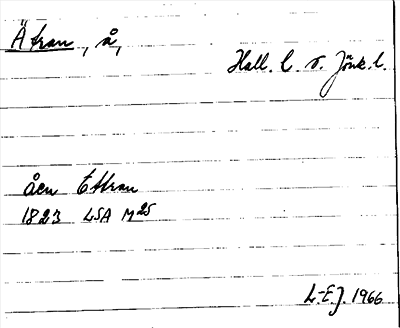 Ätran, å,
Hall. l. o. Jönk. l.
åen Ettran
1823 LSA M25
L-E.J. 1966